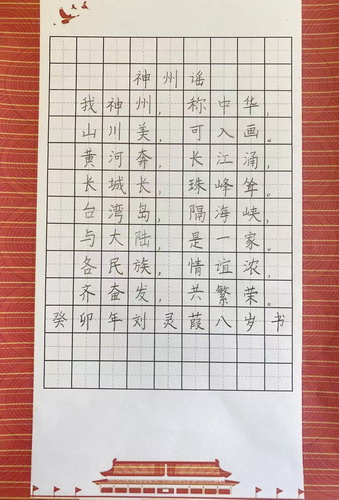 神州谣
我神州，称中华，
山川美，可入画。
黄河奔，长江涌，
长城长，珠峰耸。
台湾岛，隔海峡，
与大陆，是一家。
各民族，情谊浓，
齐奋发，共繁荣。
癸卯年刘灵葭八岁书